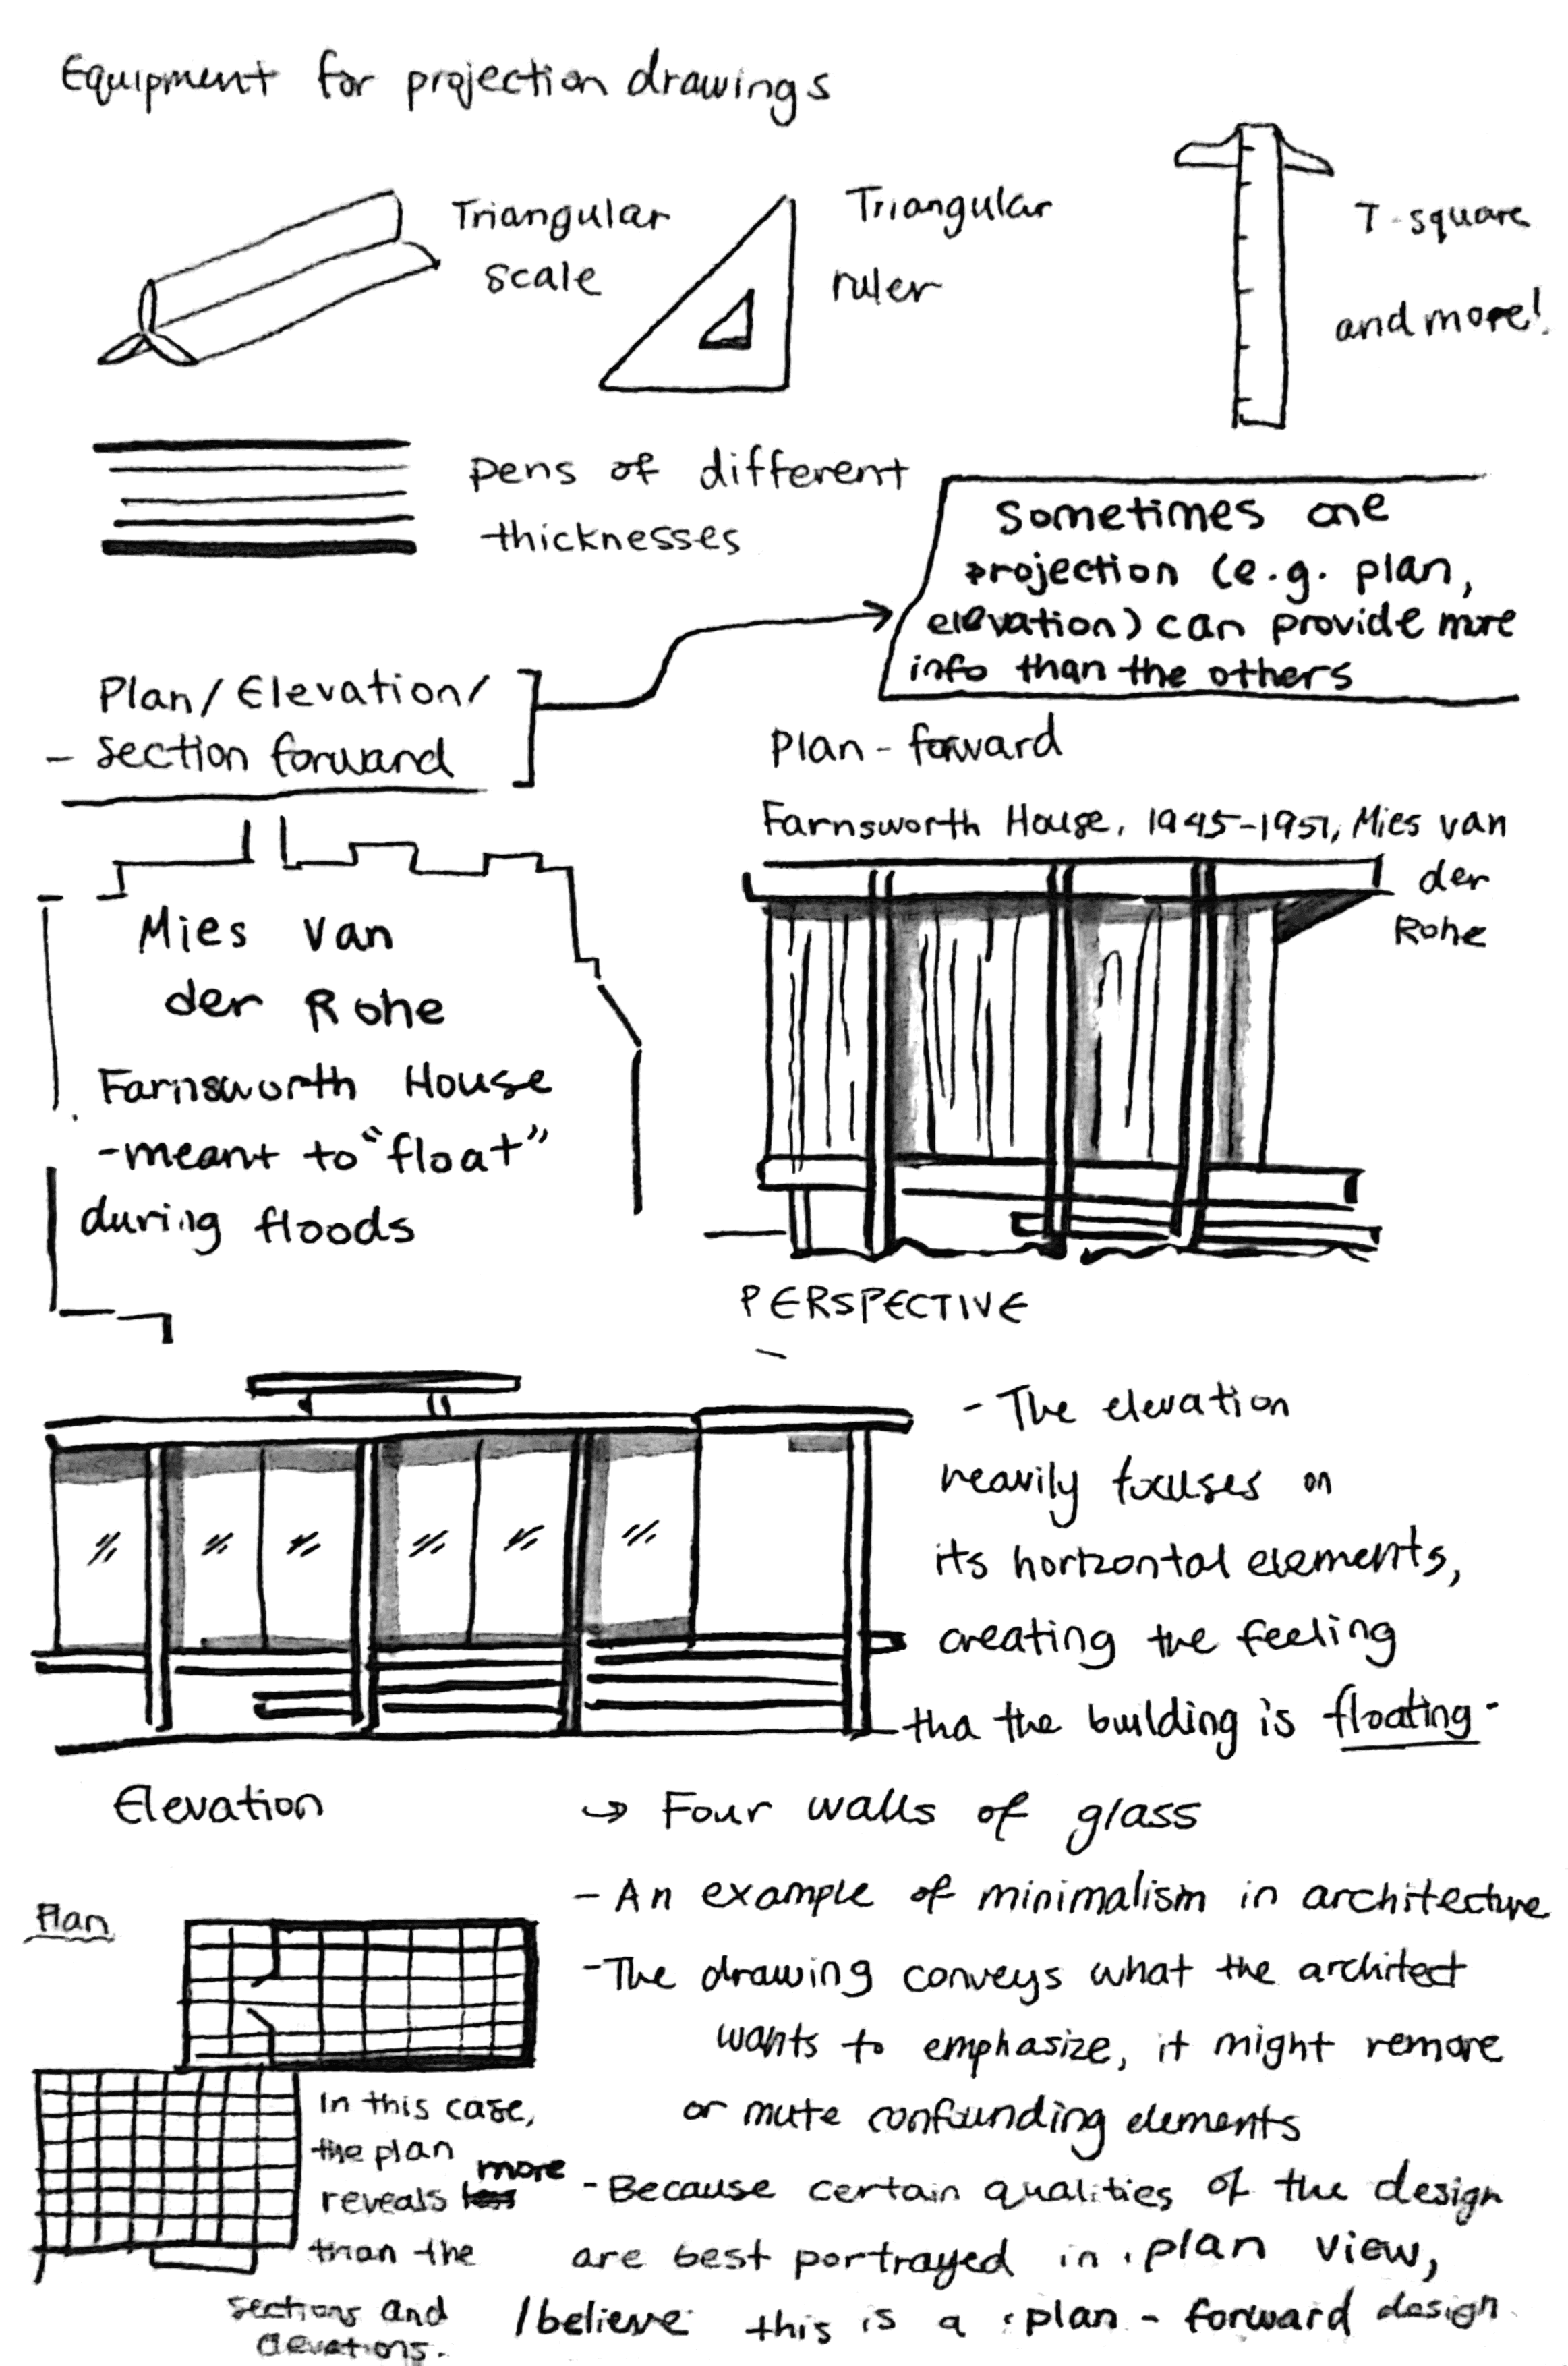 Equipment for projection drawings
Triangular
scale
Triangular
ruler
T-square
and more!
pens of different
thicknesses
Sometimes one
projection (e.g. plan,
elevation) can provide more
info than the others
Plan/Elevation/
- Section forward
Plan-forward
Farnsworth House, 1945-1951, Mies van
der
Rohe
Mies Van
der Rohe
Farnsworth House
-meant to "float"
during floods
PERSPECTIVE
- The elevation
heavily focuses on
its horizontal elements,
creating the feeling
tha the building is floating.
Elevation
↪ Four walls of glass
- An example of minimalism in architecture
- The drawing conveys what the architect
wants to emphasize, it might remore
or mute confounding elements
Plan
In this case,
the plan
reveals less more
than the
sections and
elevations.
- Because certain qualities of the design
are best portrayed in plan view,
I believe this is a plan-forward design